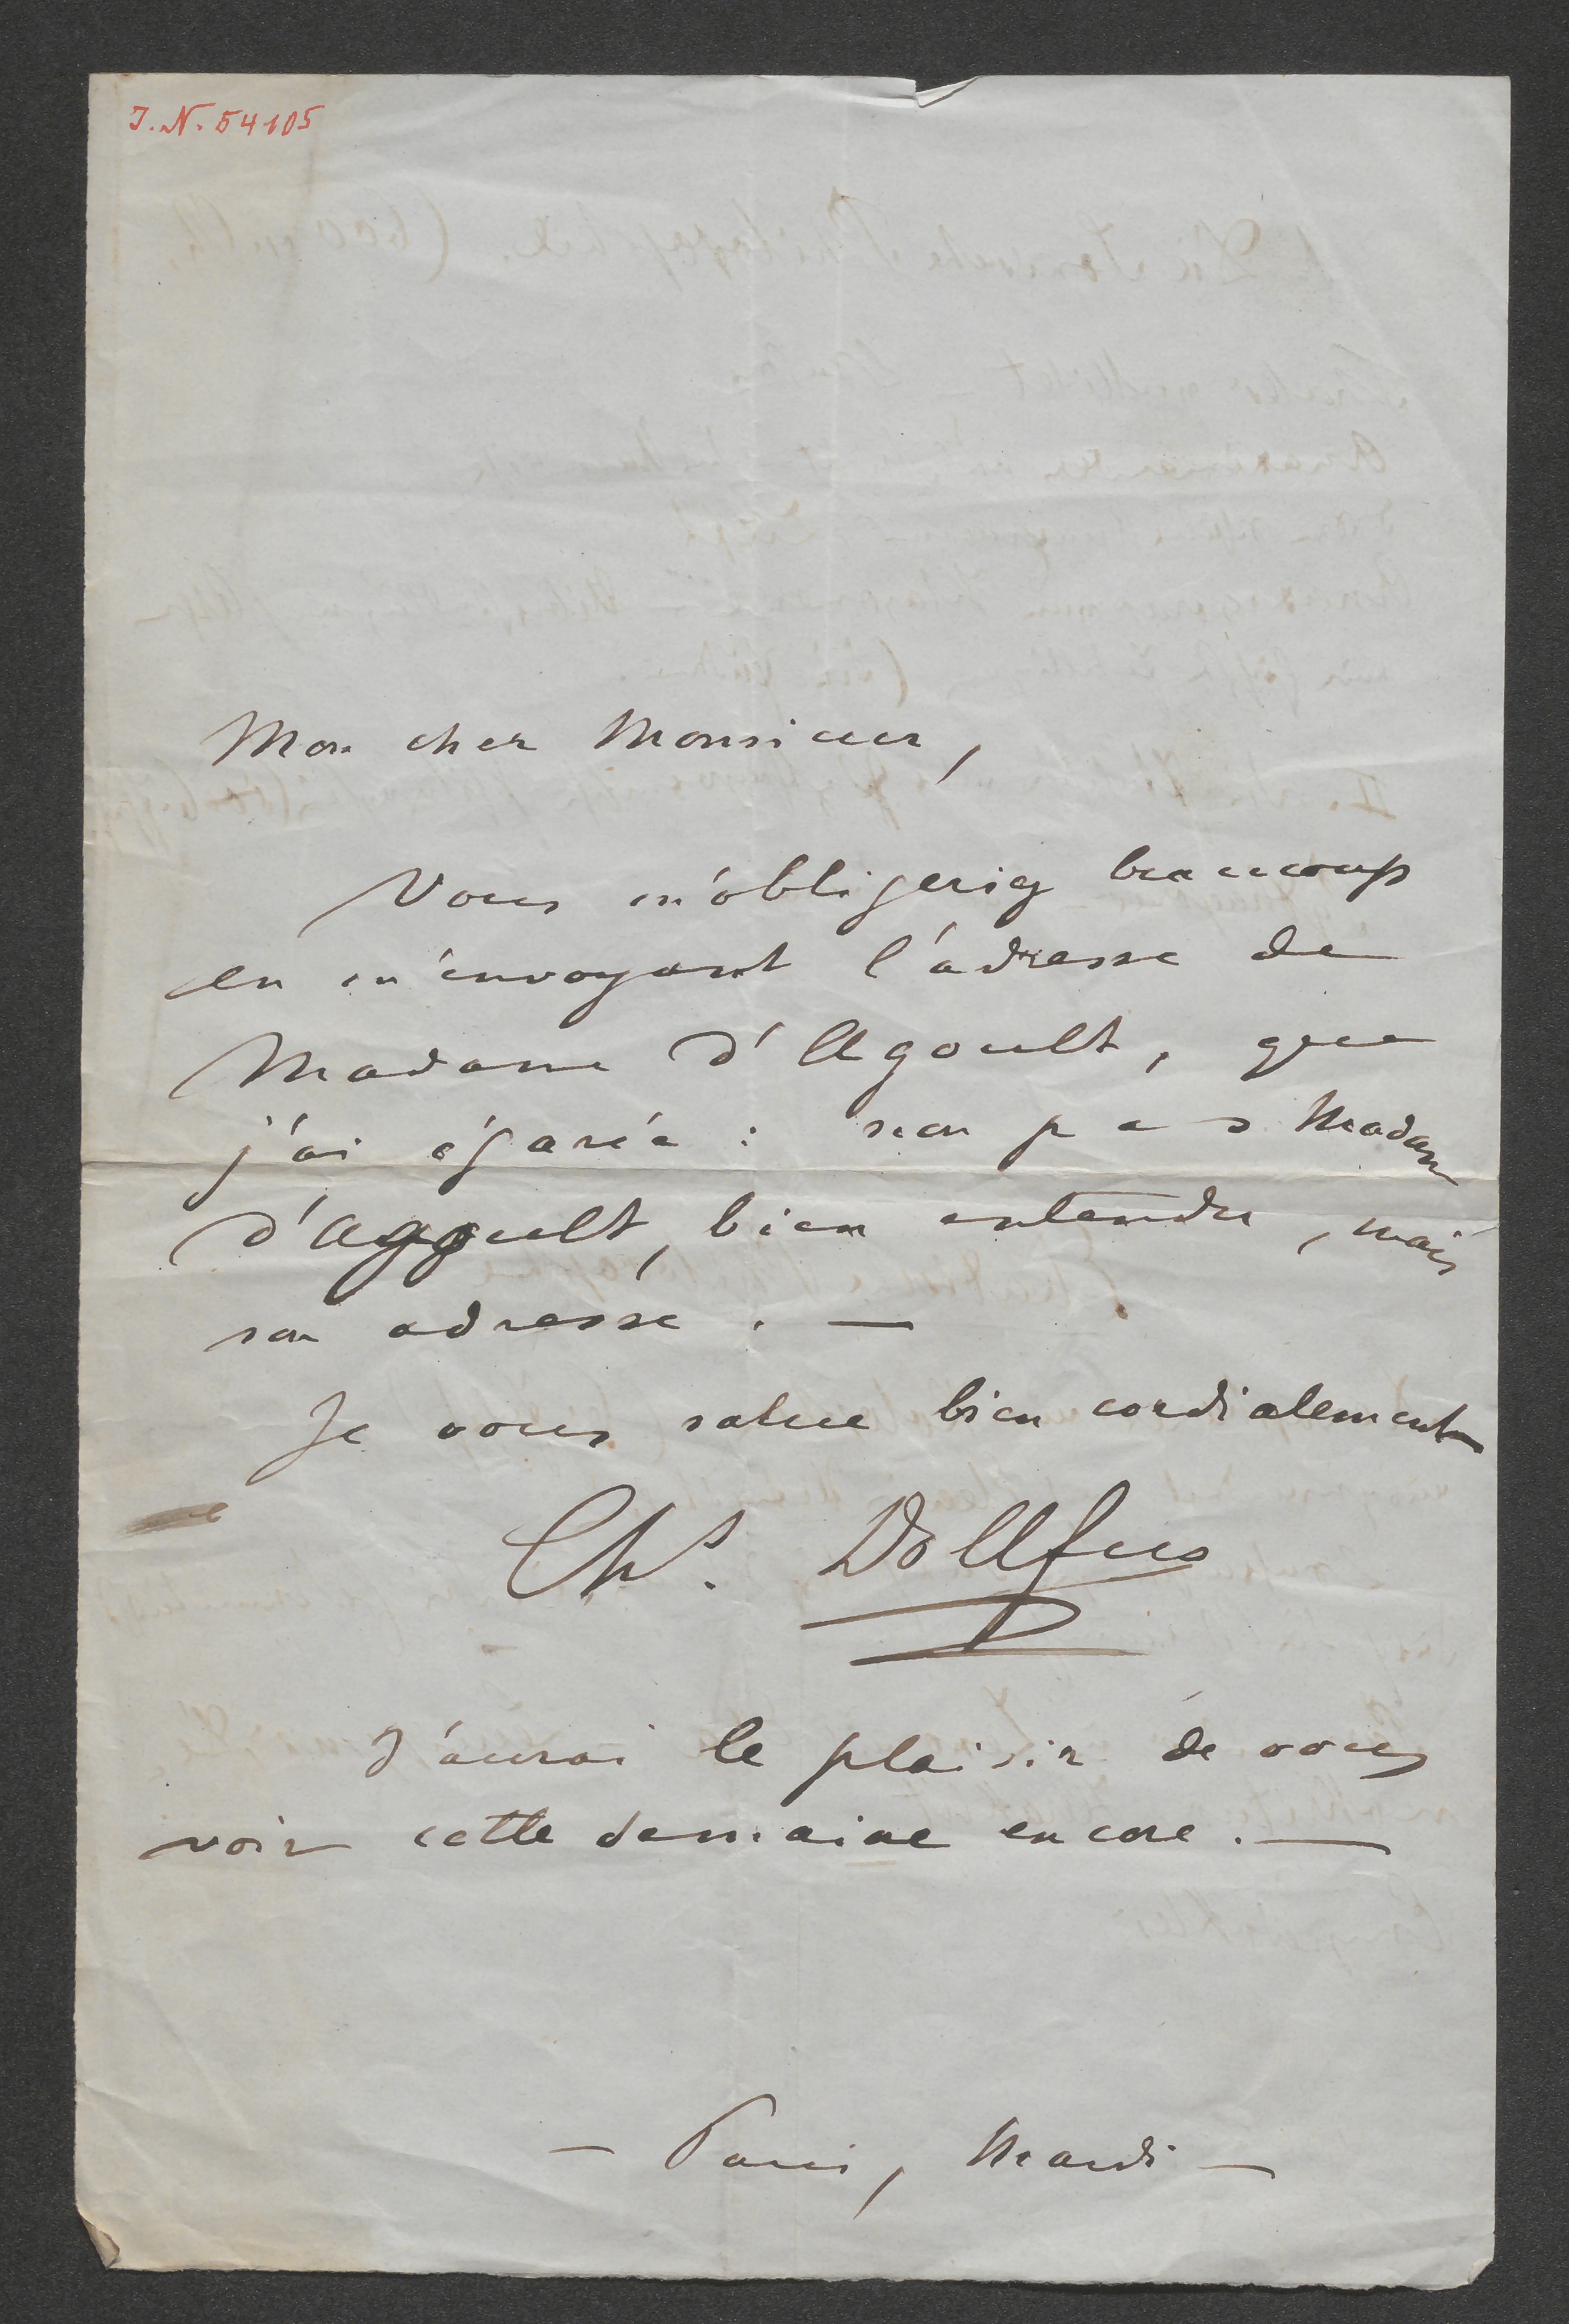 J.N. 54105
Mon cher Monsieur,
Vous m'obligeriez beaucoup
en m'envoyant l'adresse de
Madame d'Agoult, que
j'ai égarée : non pas Madame
d'Agoult, bien entendu, mais
son adresse. —
Je vous salue bien cordialement
Chs. Dollfus
J'aurai le plaisir de vous
voir cette semaine encore. —
— Paris, Mardi —